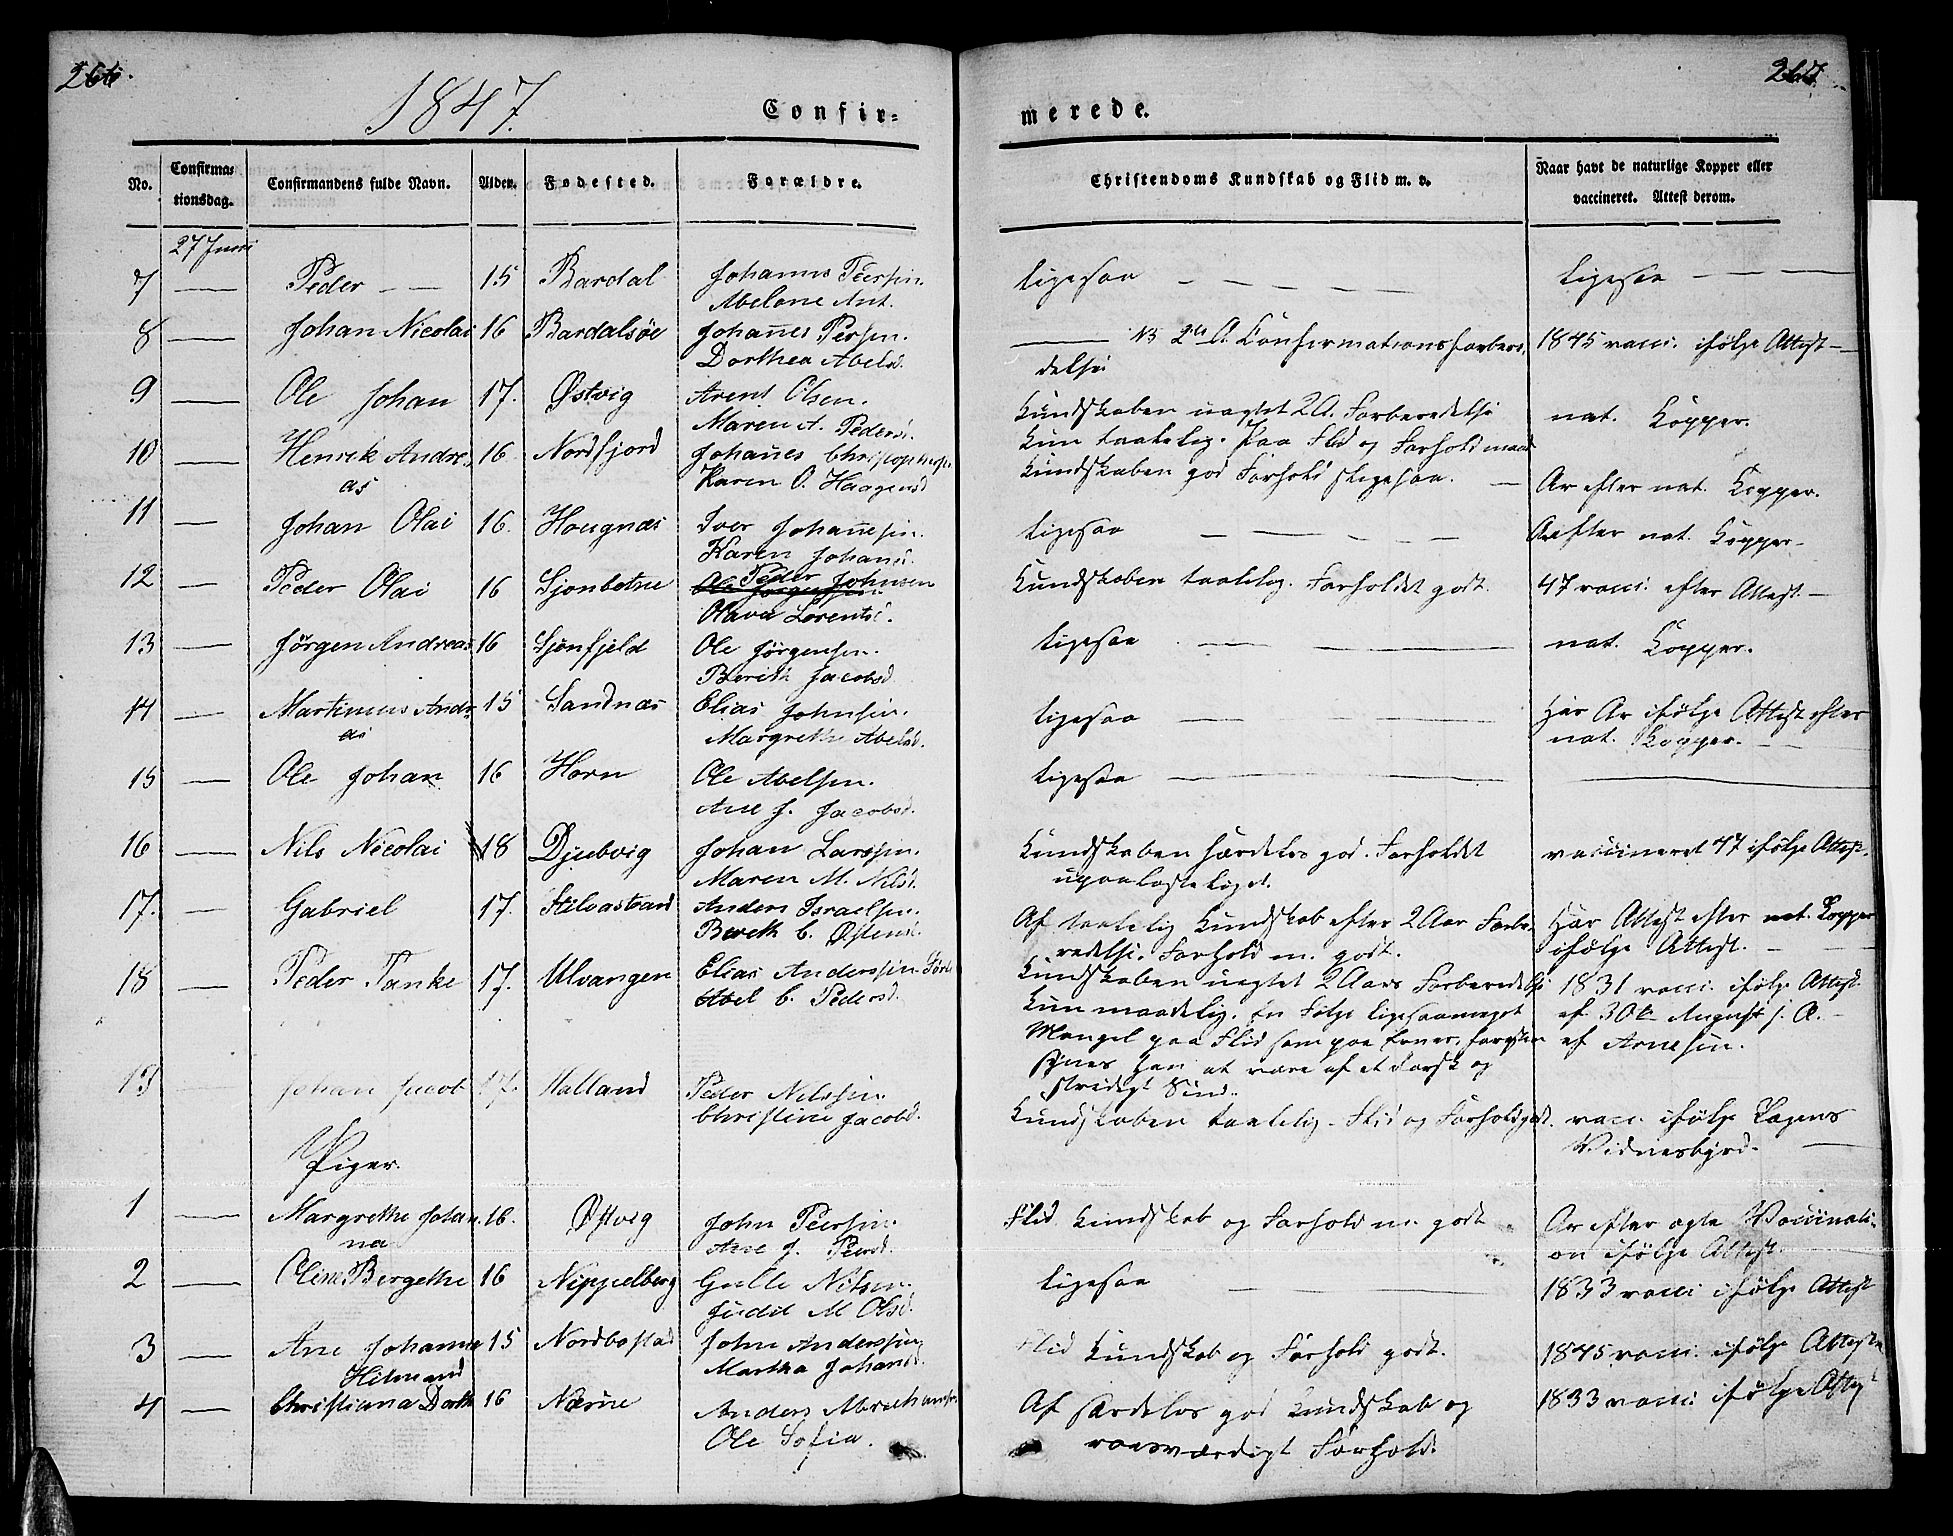 266.
267.
1847.
Confir=
merede.
No.
Confirma=
tionsdag.
Confirmandens fulde Navn.
Alder.
Fødested.
Forældre.
Christendoms Kundskab og Flid m. v.
Naar havt de naturlige Kopper eller
vaccineret. Attest derom.
27 Juni
7 — Peder — — 15 Bardal Johannes Peersen.
Abelone Ant.
ligesaa — — — — —
ligesaa — — —
8 — Johan Nicolai 16 Bardalsöe Johanes Persen.
Dorthea Abelsd.
— NB 2det A. Confirmationsforbere-
delse
1845 vacci. ifølge Attest —
9 — Ole Johan 17. Østvig Arent Olsen.
Maren A. Pedersd.
Kundskaben uagtet 2 A. Forberedelse
kun taalelig. Paa Flid og Forhold
nat. Kopper.
10 — Henrik Andre-
as 16 Nordfjord Johanes Christophers.
Karen O. Haagensd
Kundskaben god Forhold ligesaa. —
Ar efter nat. Kopper.
11 — Johan Olai 16. Hougnæs Iver Johanesen.
Karen Johansd.
ligesaa — — — — —
Ar efter nat. Kopper —
12 — Peder Olai 16 Sjonbotne Peder Johnsen
Olava Lorentsd.
Kundskaben taalelig. Forholdet godt.
47 vacci. efter Attest. —
13 — Jörgen Andreas 16 Sjonfjeld Ole Jörgensen.
Bereth Jacobsd.
ligesaa — — —
nat. Kopper.
14 — Martinus Andre
as 15 Sandnæs Elias Johnsen.
Margrethe Abelsd.
ligesaa — — —
Har Ar ifølge Attest efter
nat. Kopper. —
15 — Ole Johan 16 Horn Ole Abelsen.
Ane J. Jacobsd.
ligesaa — — —
16 — Nils Nicolai 18 Djubvig Johan Larssen.
Maren M. Nilsd.
Kundskaben særdeles god. Forholdet
upaaklageliget.
vaccineret 47 ifølge Attest.
17. — Gabriel 17. Stilvastrand Anders Israelsen.
Bereth C. Östensd.
Af taalelig Kundskab efter 2 Aar Forbe-
redelse. Forhold m. godt.
Har Attest efter nat. Kopper
ifølge Attest. —
18 — Peder Tanke 17. Ulvangen Elias Anderssen
Abel C. Pedersd.
Kundskaben uagtet 2 Aars Forberedelse
kun maadelig. En Følge ligesaameget
Mangel paa Flid som paa Evner, forresten
synes han at være af et tørsk og
stridigt Sind.
1831 vacci. ifølge Attest
af 30te August s. A. —
af Arnesen.
19 — Johan Jacob 17. Halland Peder Nilssen.
Christine Jacobsd.
Kundskaben taalelig. Flid og Forhold godt.
vacc. ifølge Vidnesbyrd. —
Piger.
1 — Margrethe Johan
na 16. Østvig John Peersen.
Ane J. Peersd.
Flid Kundskab og Forhold m. godt
Ar efter ægte Vaccinati-
on ifølge Attest.
2 — Oline Bergethe 16 Nippelberg Gulle Nilsen.
Judit M Olsd.
ligesaa — — —
1833 vacci ifølge Attest
3 — Ane Johanna
15 Nordbostad John Anderssen
Martha Johansd.
Flid Kundskab og Forhold godt.
1845 vacci. ifølge Attest
4 — Christiana Dorth 16 Næsne Anders Abrahams.
Ole Sofia.
Af særdeles god Kundskab og
roesværdigt Forhold.
1833 vacci ifølge Attest